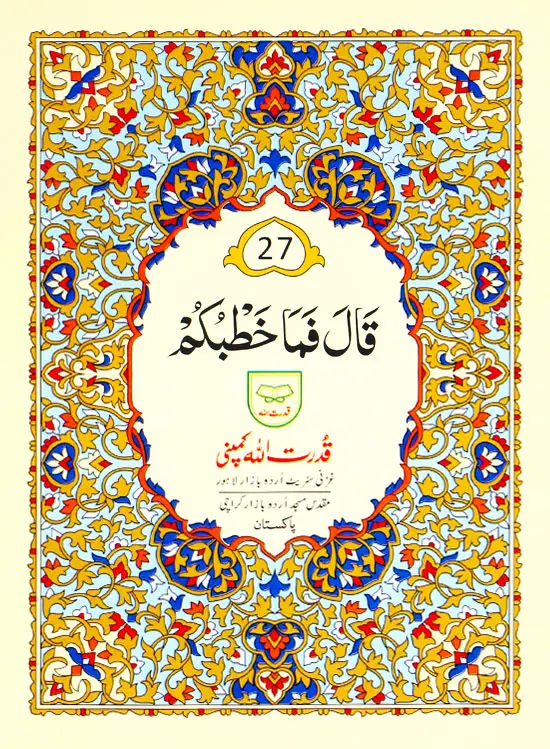 27
قَالَ فَمَا خَطْبُكُمْ
قدرت اللہ
قُدرت اللہ کمپنی
غزنی سٹریٹ اُردو بازار لاہور
مقدس مسجد اُردو بازار کراچی
پاکستان